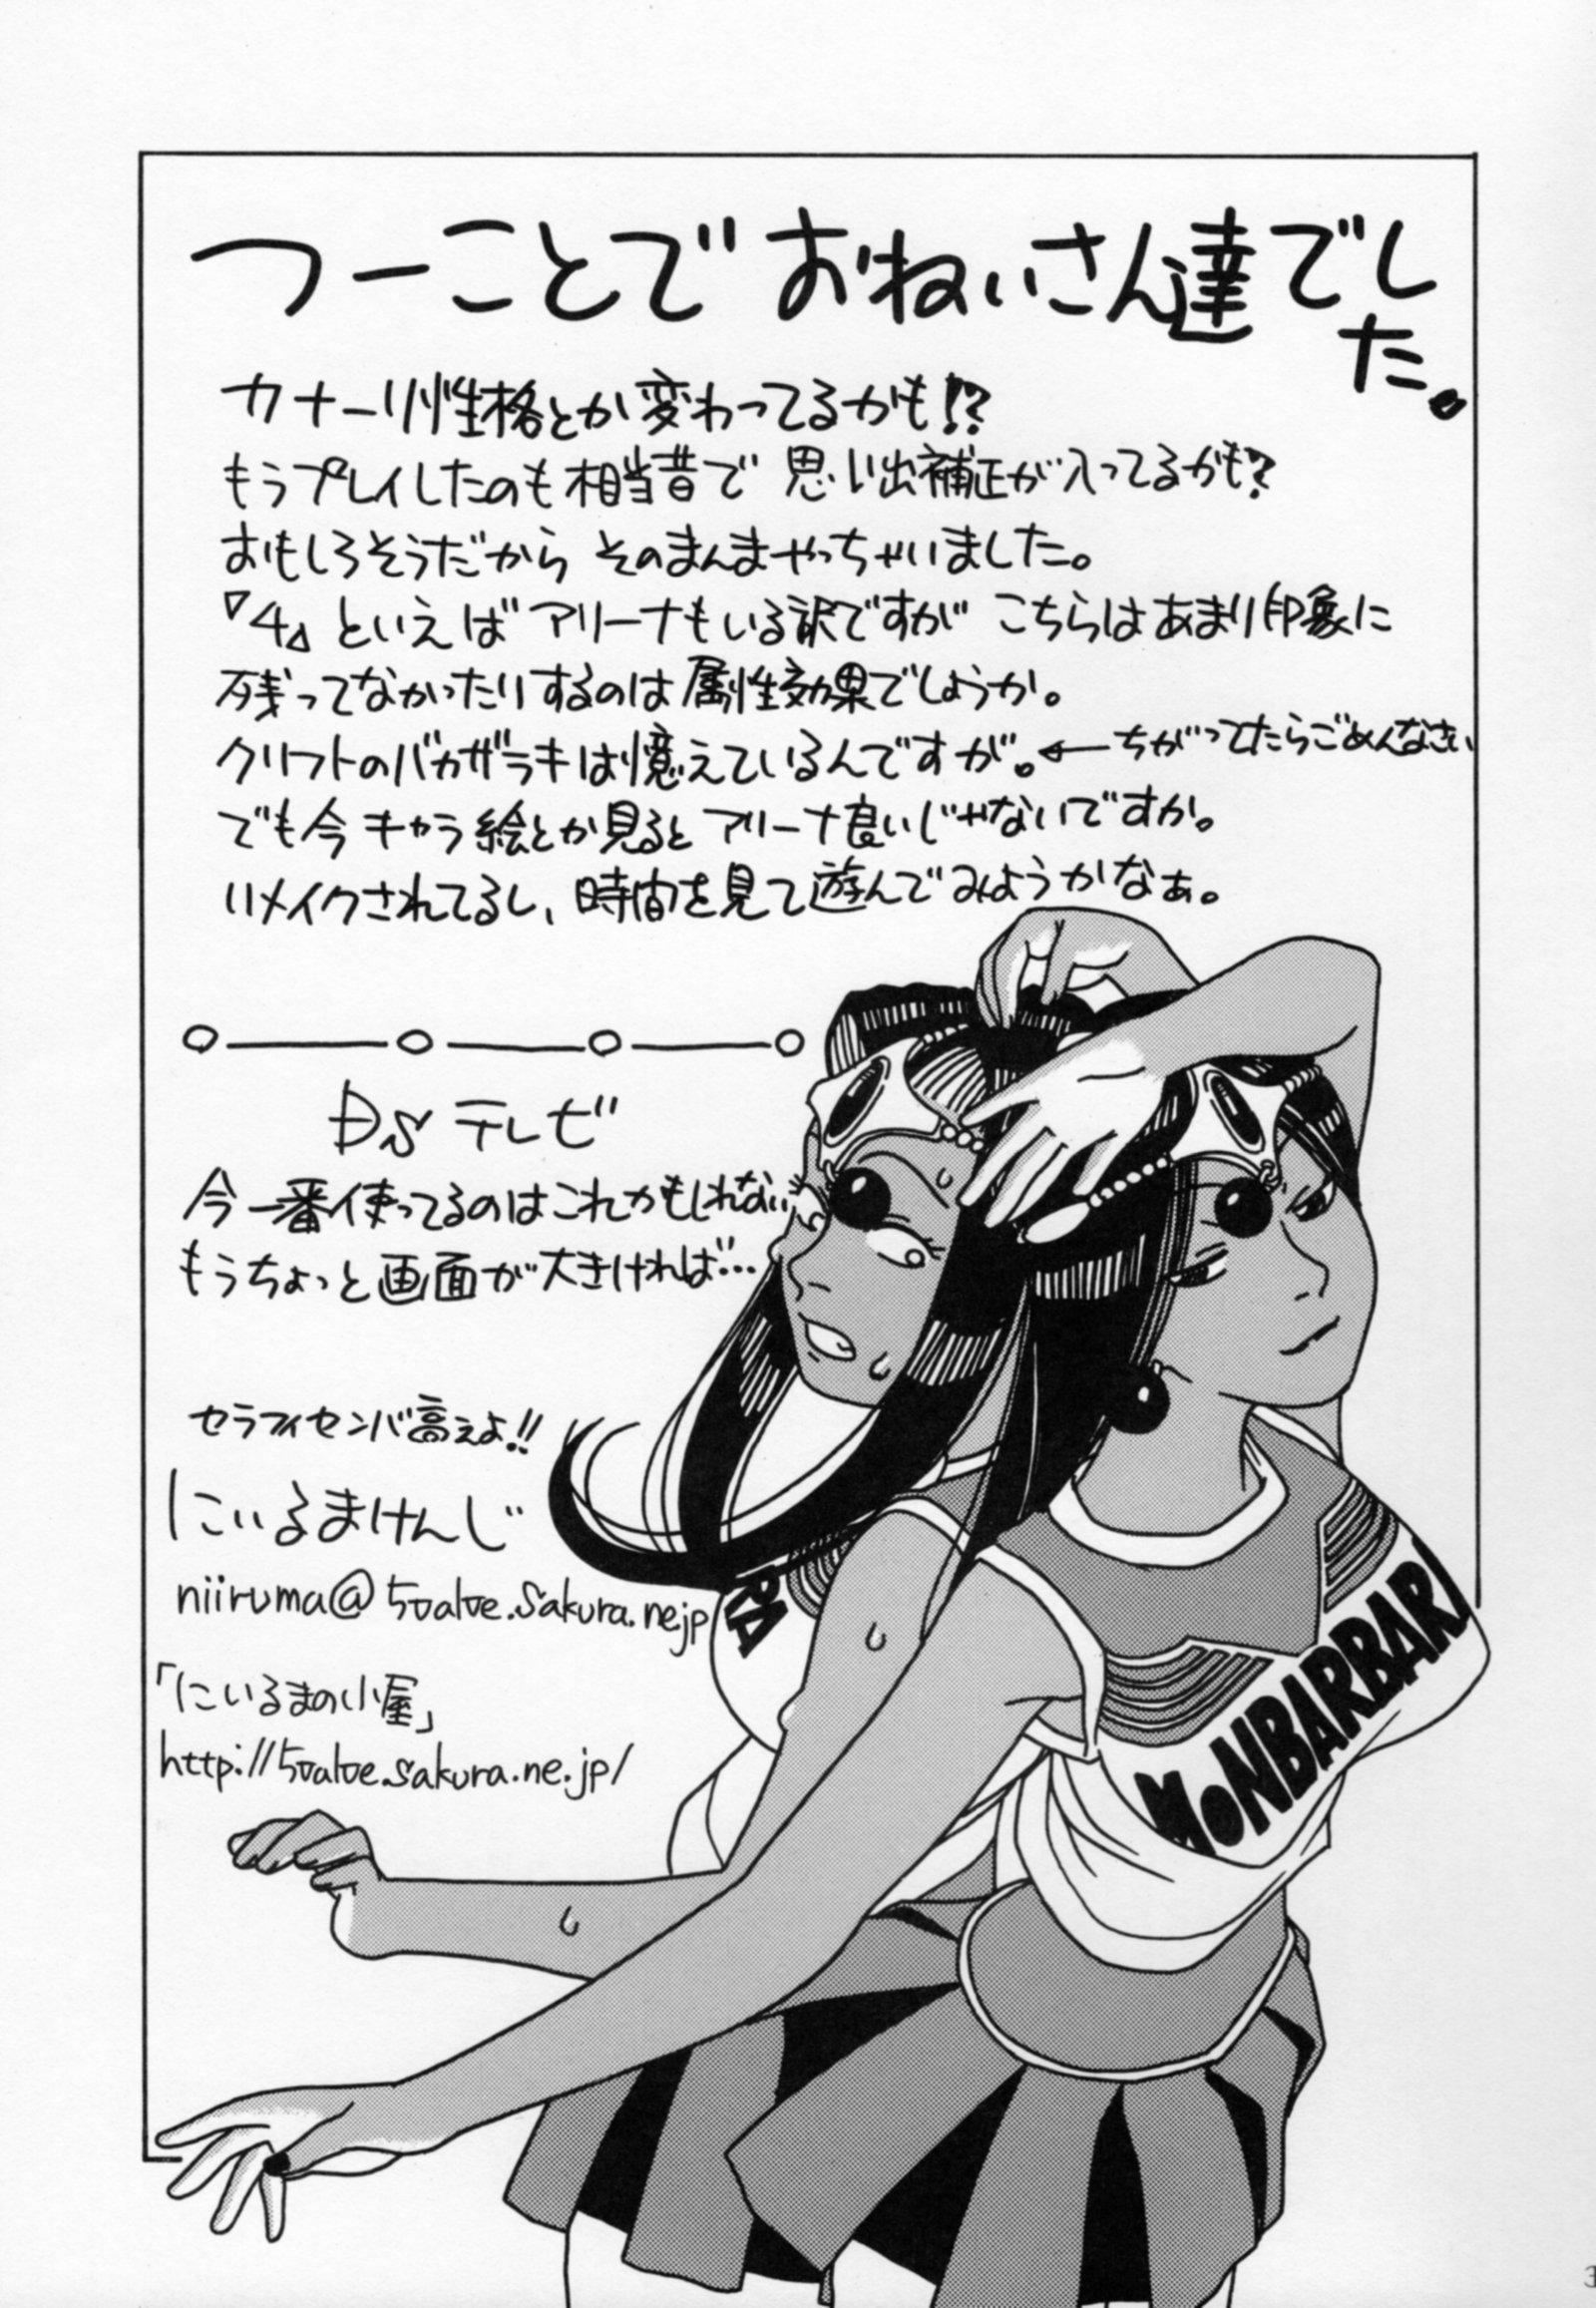 つーことでおねぃさん達でした。
カナーリ性格とか変わってるかも!?
もうプレイしたのも相当昔で 思い出補正が入ってるかも?
おもしろそうだから そのまんまやっちゃいました。
『4』といえば アリーナもいる訳ですが こちらはあまり印象に
残ってなかったりするのは属性効果でしょうか。
クリフトのバカザラキは憶えているんですが。←ちがってたらごめんなさい
でも今キャラ絵とか見ると アリーナ良いじゃないですか。
リメイクされてるし、時間を見て遊んでみようかなぁ。
DSテレビ
今一番使ってるのはこれかもしれない
もうちょっと画面が大きければ…
セラフィセンバ高ぇよ!!
にいるまけんじ
niiruma@5valve.sakura.ne.jp
「にいるまの小屋」
http://5valve.sakura.ne.jp/
MONBARBARI
3